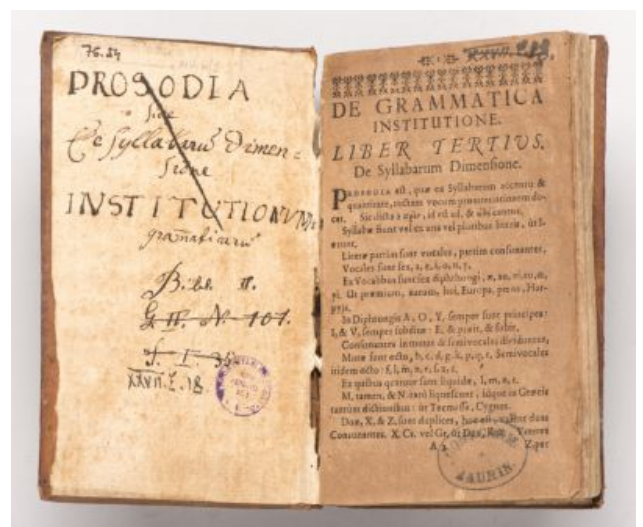 76.54
PROSODIA
Sive
De Syllabarū Dimen=
sione
INSTITUTIONUM
gramaticarū
Bibl. II.
G. IV. N. 101.
S. I.
XXVII. E. 18
DE GRAMMATICA
INSTITUTIONE.
LIBER TERTIVS.
De Syllabarum Dimensione.
PROSODIA est, quæ ex Syllabarum accentu &
quantitate, rectam vocum pronunciationem do-
cet. Sic dicta id est ad, & cantus.
Syllabæ fiunt vel ex una vel pluribus literis, ut
Literæ partim sunt vocales, partim consonantes,
Vocales sunt sex, a, e, i, o, u, y.
Ex Vocalibus fiunt sex diphthongi, æ, au, ei, eu, œ,
yi. Ut præmium, aurum, hei, Europa, pœna, Har-
pyja.
In Diphtongis A, O, Y, semper sunt principes:
I, & V, semper subditæ: E, & præit, & subit.
Consonantes in mutas & semivocales dividuntur,
Mutæ sunt octo, b, c, d, g, k, p, q, t, Semivocales
itidem octo: f, l, m, n, r, s, x, z.
Ex quibus quatuor sunt liquidæ, l, m, n, r.
M, tamen, & N rarò liquescunt, idque in Græcis
tantùm dictionibus: ut Tecmessa, Cygnus.
Duæ, X, & Z, sunt duplices, hoc est, valent duas
Consonantes. X, Cs, vel Gs, ut Dux, Rex
A
Z, per
JAURIN